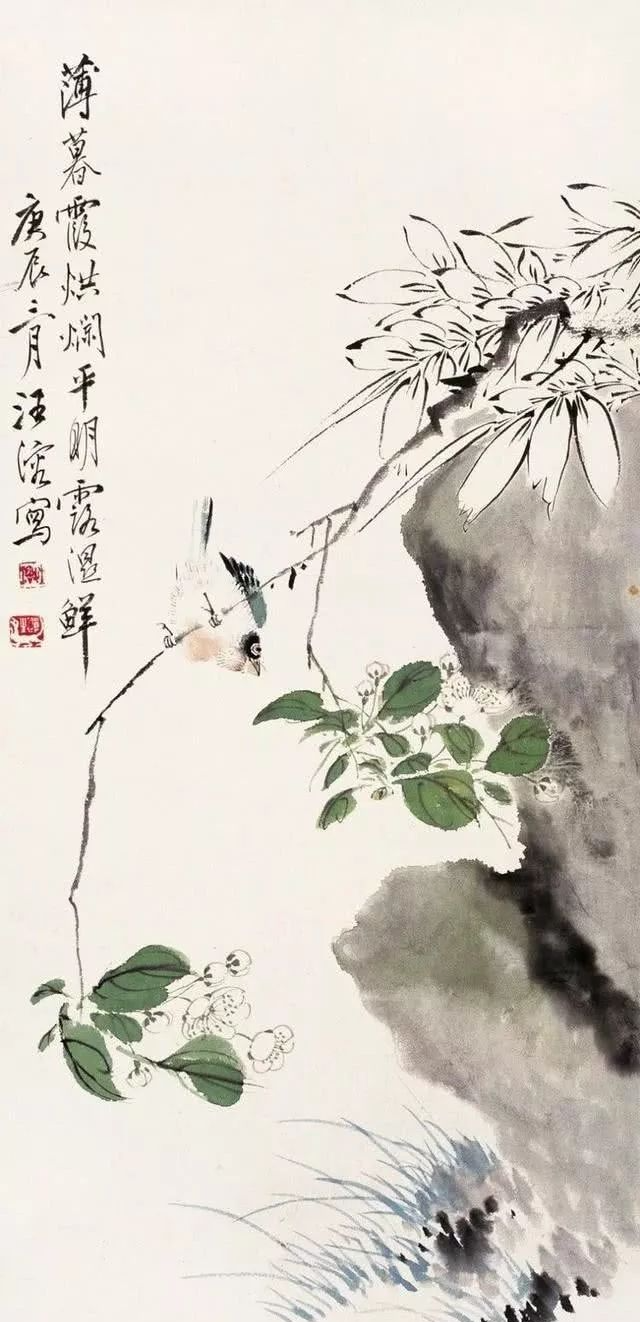 薄暮霞烘烂平明露湿鲜
庚辰二月汪溶写